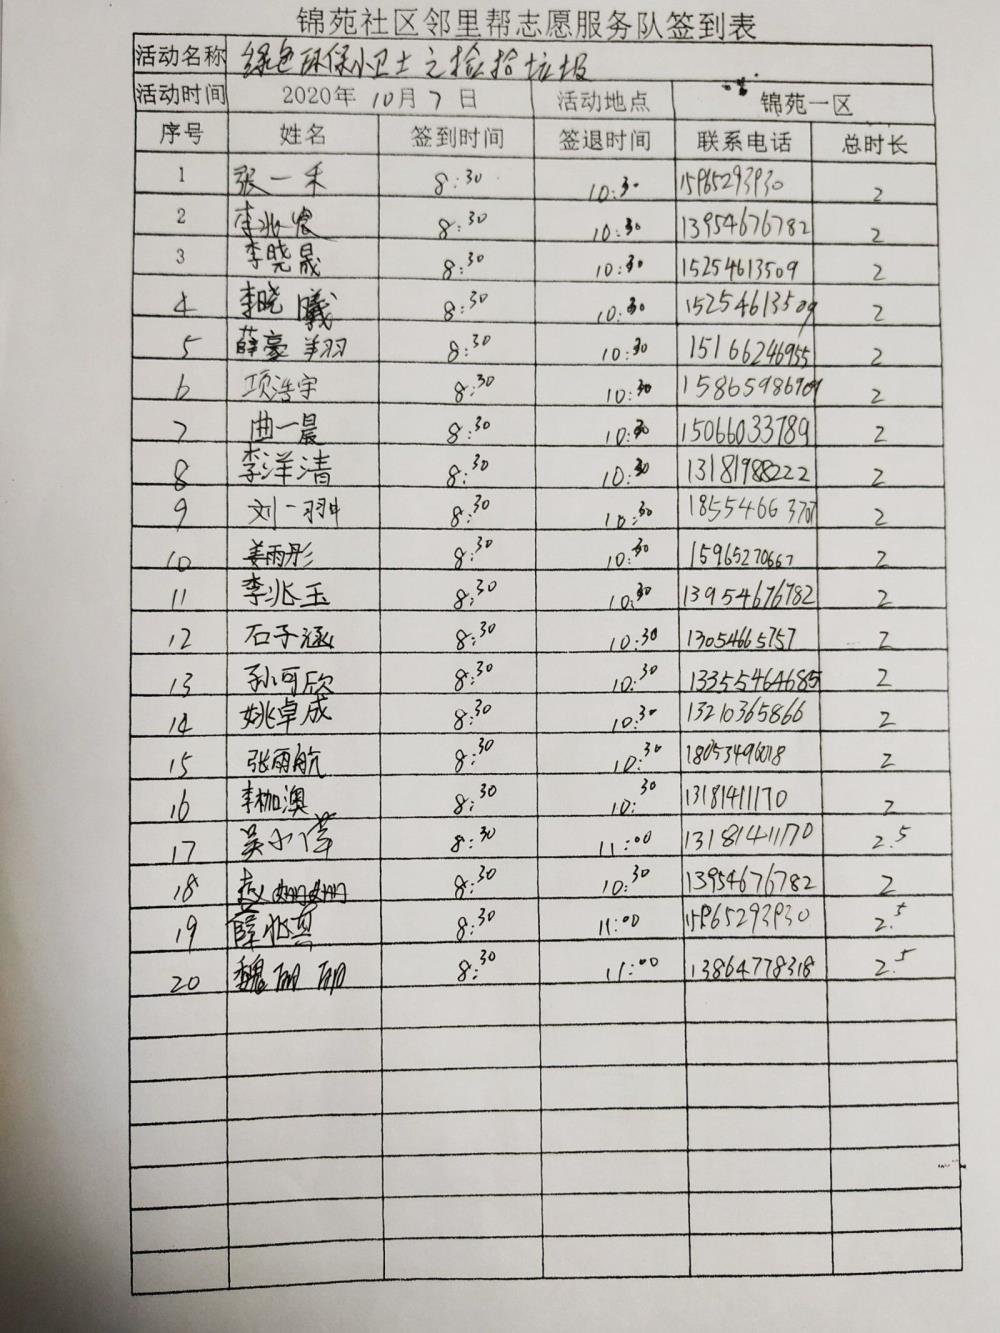 锦苑社区邻里帮志愿服务队签到表
活动名称 绿色环保小卫士之捡拾垃圾
活动时间 2020年10月7日 活动地点 锦苑一区
序号 姓名 签到时间 签退时间 联系电话 总时长
1 张一禾 8:30 10:30 15965293930 2
2 李兆 8:30 10:30 13954676782 2
3 李晓晟 8:30 10:30 15254613509 2
4 李晓曦 8:30 10:30 15254613509 2
5 薛豪翔 8:30 10:30 15166246955 2
6 项浩宇 8:30 10:30 2
7 曲一晨 8:30 10:30 15066033789 2
8 李洋清 8:30 10:30 13181988222 2
9 刘一翀 8:30 10:30 18554663707 2
10 姜雨彤 8:30 10:30 15965270667 2
11 李兆玉 8:30 10:30 13954676782 2
12 石子涵 8:30 10:30 13054665757 2
13 孙可欣 8:30 10:30 13355464685 2
14 姚卓成 8:30 10:30 13210365866 2
15 张雨航 8:30 10:30 2
16 李枷澳 8:30 10:30 13181411170 2
17 吴小萍 8:30 11:00 13181411170 2.5
18 姗姗 8:30 10:30 13954676782 2
19 薛兆真 8:30 11:00 15965293930 2.5
20 魏丽丽 8:30 11:00 13864778318 2.5